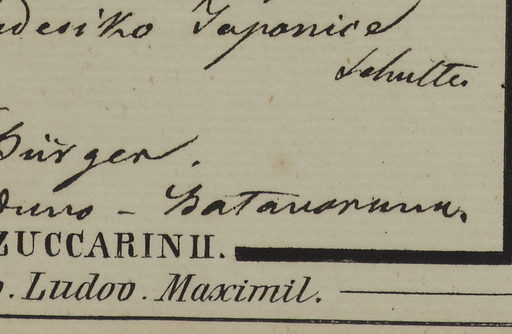 desiko Japonice
Schultes
Bürger.
duno - Batavorum.
ZUCCARINII.
. Ludov. Maximil.